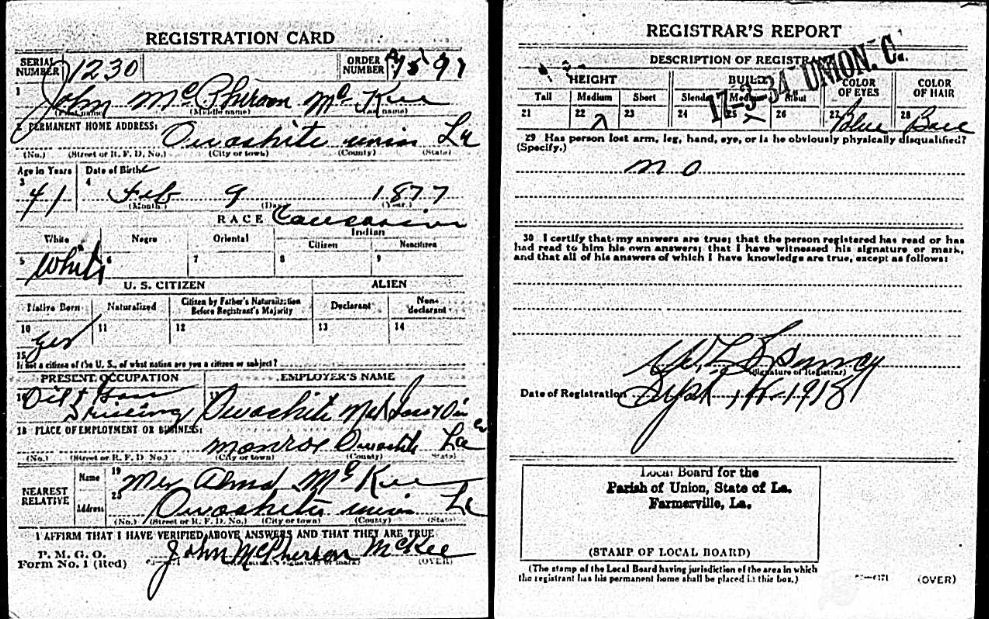 REGISTRATION CARD
SERIAL NUMBER 1230
ORDER NUMBER
1 John McPherson McKee
(First name) (Middle name) (Last name)
2 PERMANENT HOME ADDRESS:
Ouachita union La
(No.) (Street or R. F. D. No.) (City or town) (County) (State)
Age in Years Date of Birth
3 41 4 Feb 9 1877
(Month.) (Day.) (Year.)
RACE Caucasian
White Negro Oriental Indian
Citizen Noncitizen
5 White 6 7 8 9
U. S. CITIZEN ALIEN
Native Born Naturalized Citizen by Father's Naturalization Before Registrant's Majority Declarant Non-declarant
10 yes 11 12 13 14
15
If not a citizen of the U. S., of what nation are you a citizen or subject?
PRESENT OCCUPATION EMPLOYER'S NAME
16 Oil & Gas Drilling Ouachita Nat
18 PLACE OF EMPLOYMENT OR BUSINESS:
Monroe Ouachita La
(No.) (Street or R. F. D. No.) (City or town) (County) (State)
NEAREST RELATIVE
Name 19 Mrs Alma McKee
Address 20 Ouachita union La
(No.) (Street or R. F. D. No.) (City or town) (County) (State)
I AFFIRM THAT I HAVE VERIFIED ABOVE ANSWERS AND THAT THEY ARE TRUE
P. M. G. O.
Form No. 1 (Red)
John McPherson McKee
(OVER)
REGISTRAR'S REPORT
17-3-34 UNION. C.
DESCRIPTION OF REGISTRANT
HEIGHT BUILD COLOR OF EYES COLOR OF HAIR
Tall Medium Short Slender Medium Stout
21 22 23 24 25 x 26 27 Blue 28
29 Has person lost arm, leg, hand, eye, or is he obviously physically disqualified?
(Specify.)
no
30 I certify that my answers are true; that the person registered has read or has
had read to him his own answers; that I have witnessed his signature or mark,
and that all of his answers of which I have knowledge are true, except as follows:
(Signature of Registrar)
Date of Registration Sept 1918
Local Board for the
Parish of Union, State of La.
Farmerville, La.
(STAMP OF LOCAL BOARD)
(The stamp of the Local Board having jurisdiction of the area in which
the registrant has his permanent home shall be placed in this box.)
(OVER)